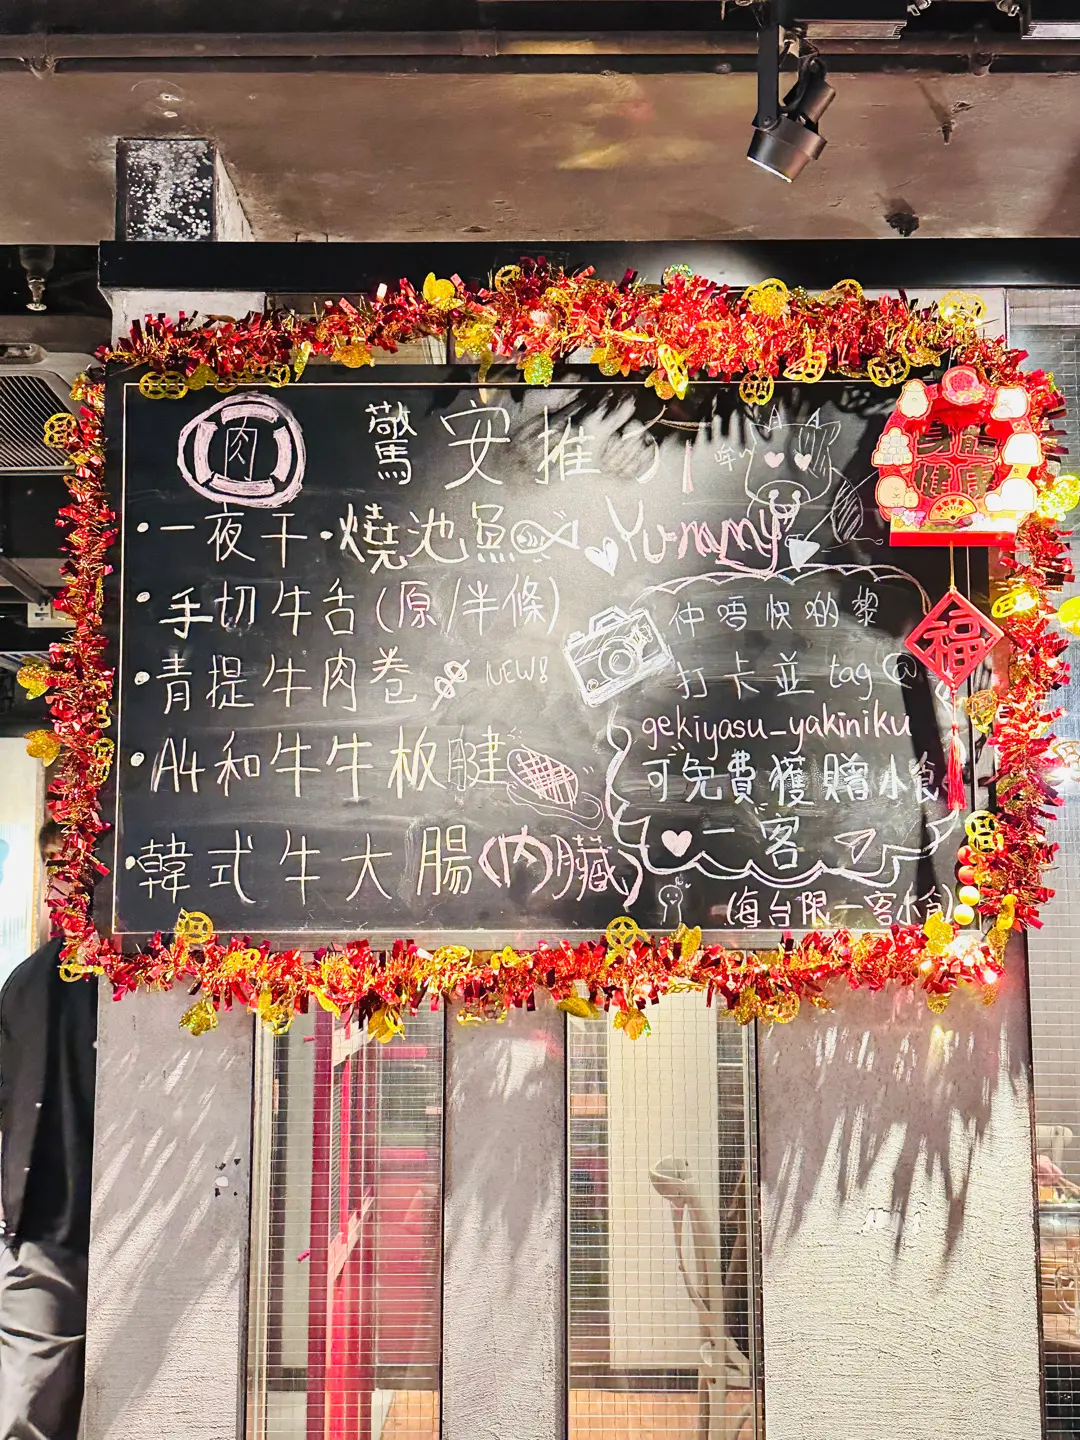 肉
驚安推介
哞
一夜干·燒池魚
Yummy
手切牛舌(原/半條)
青提牛肉卷 NEW!
A4和牛牛板腱
韓式牛大腸(內臟)
仲唔快啲黎
打卡並 tag @
gekiyasu_yakiniku
可免費獲贈小食
一客
(每台限一客小食)
身體
健康
福